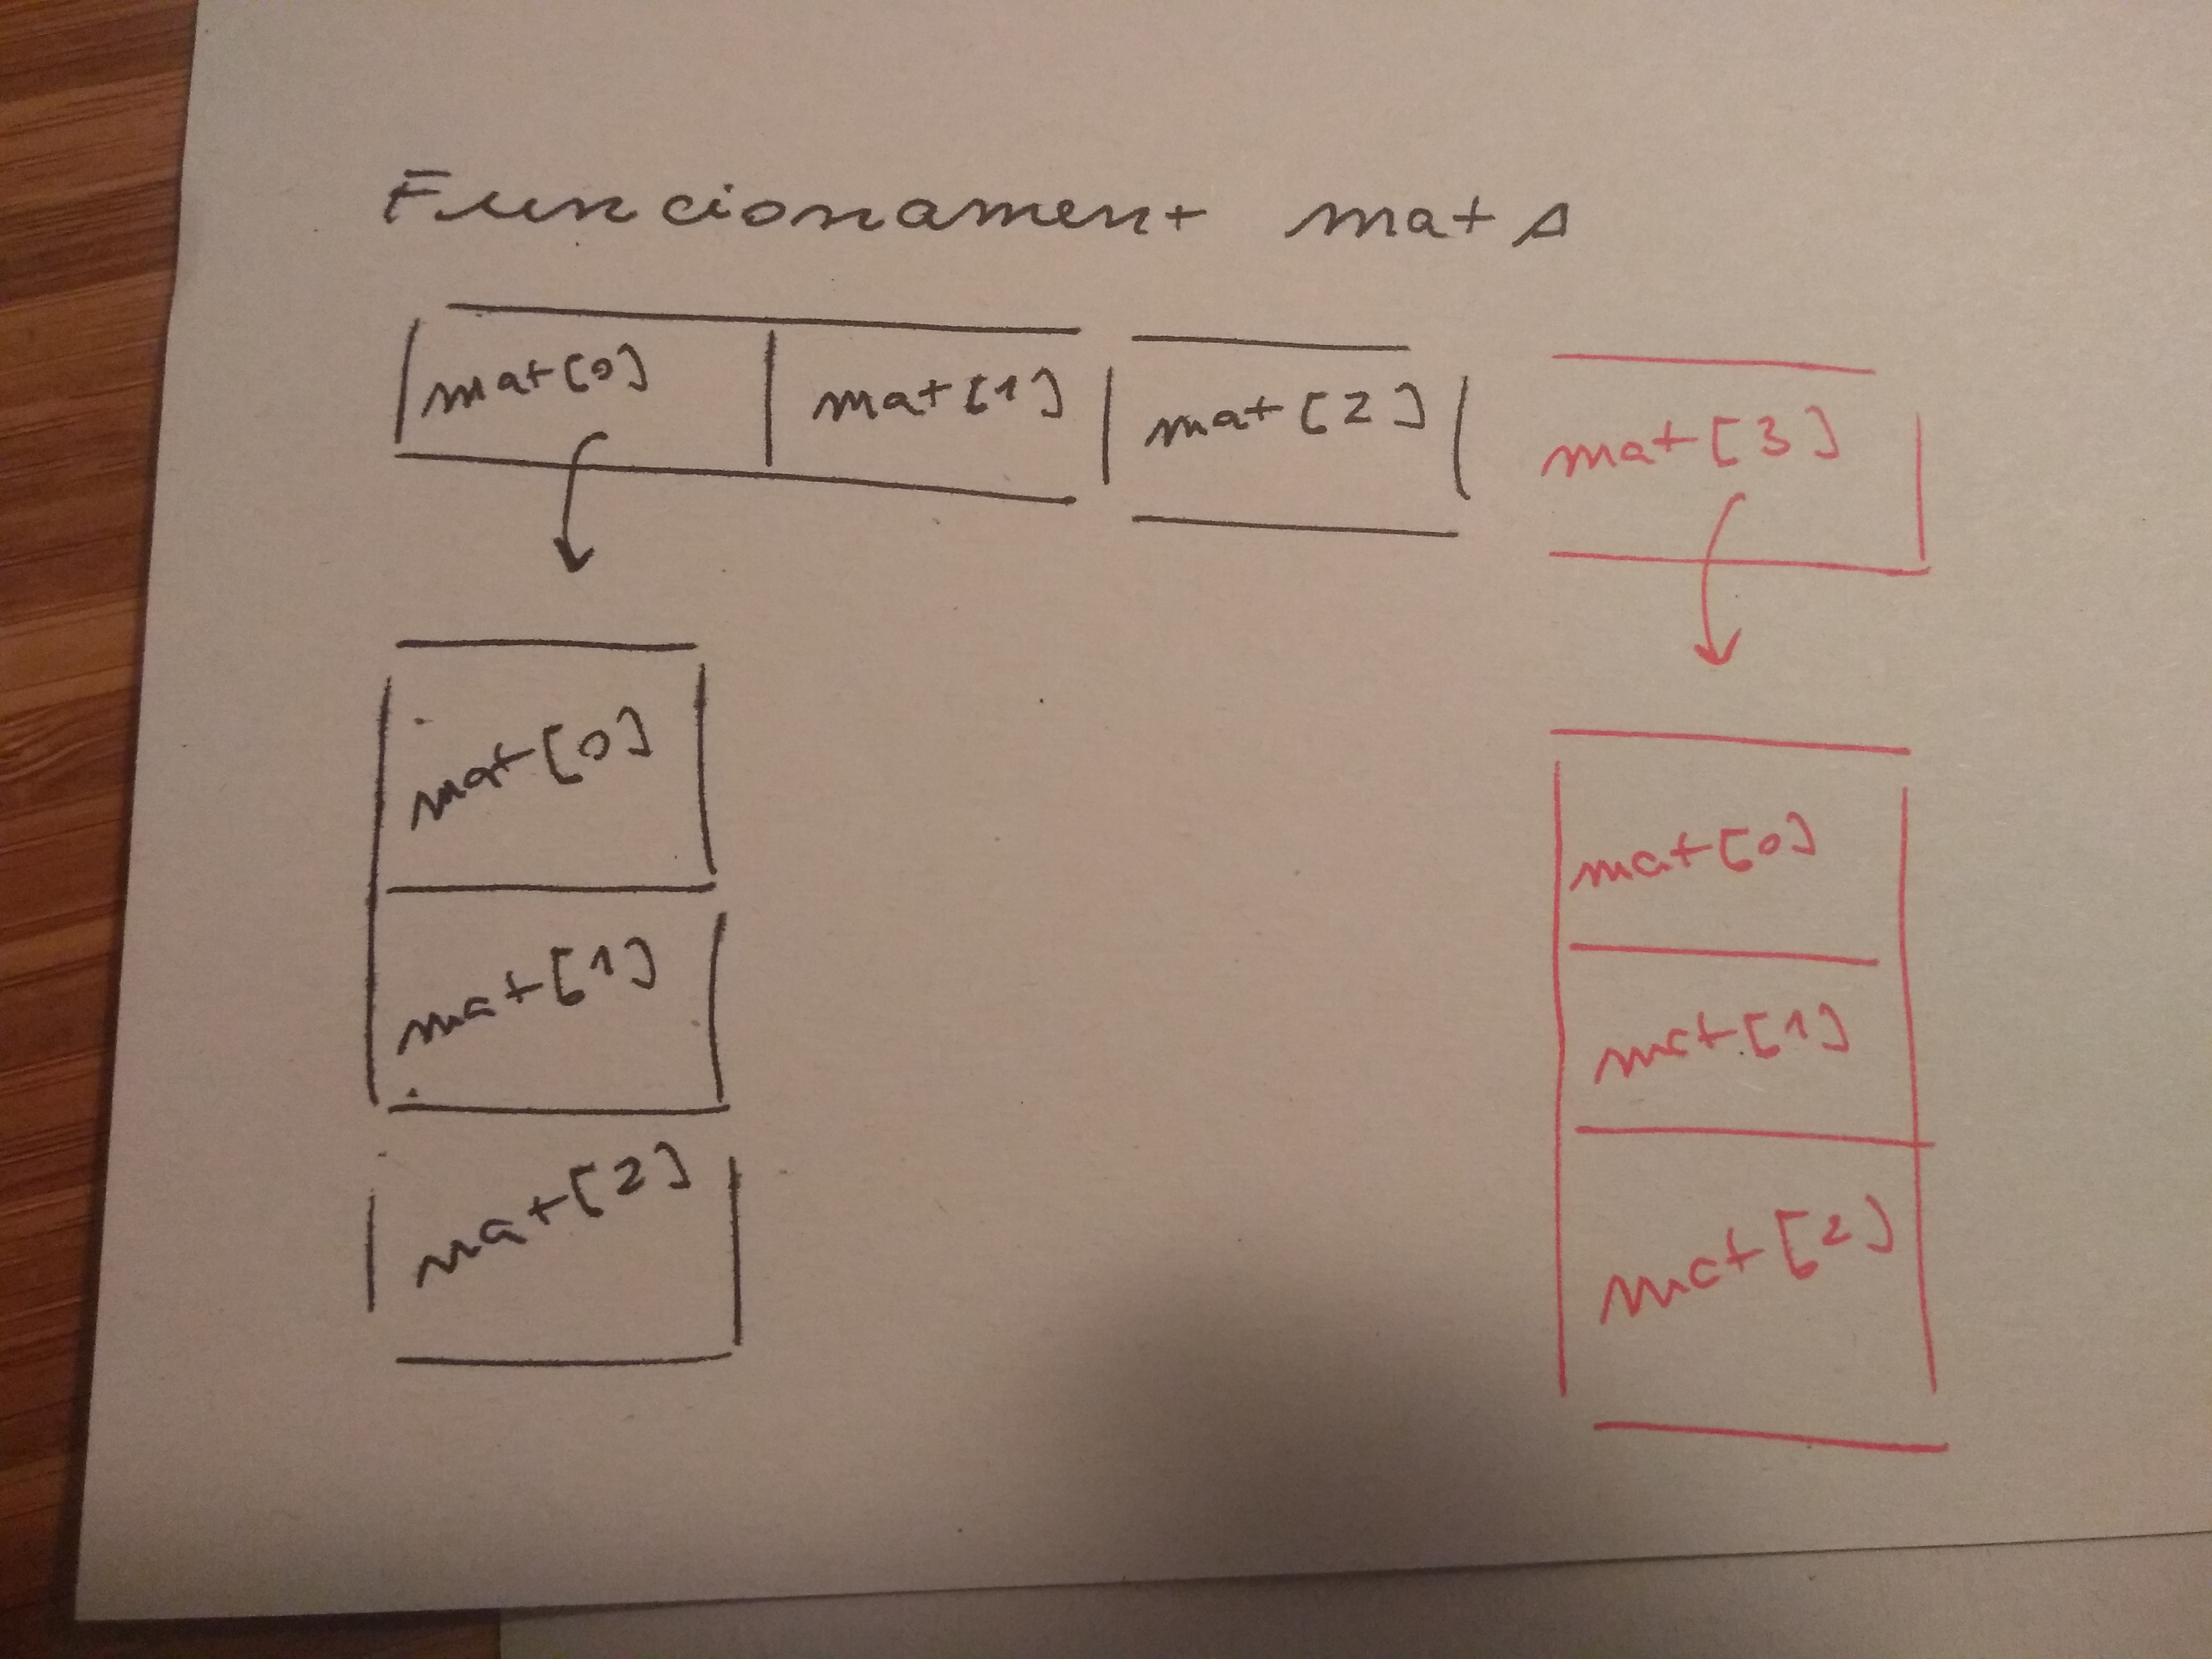 Funcionament mats
mat[0] mat[1] mat[2] mat[3]
mat[0]
mat[1]
mat[2]
mat[0]
mat[1]
mat[2]